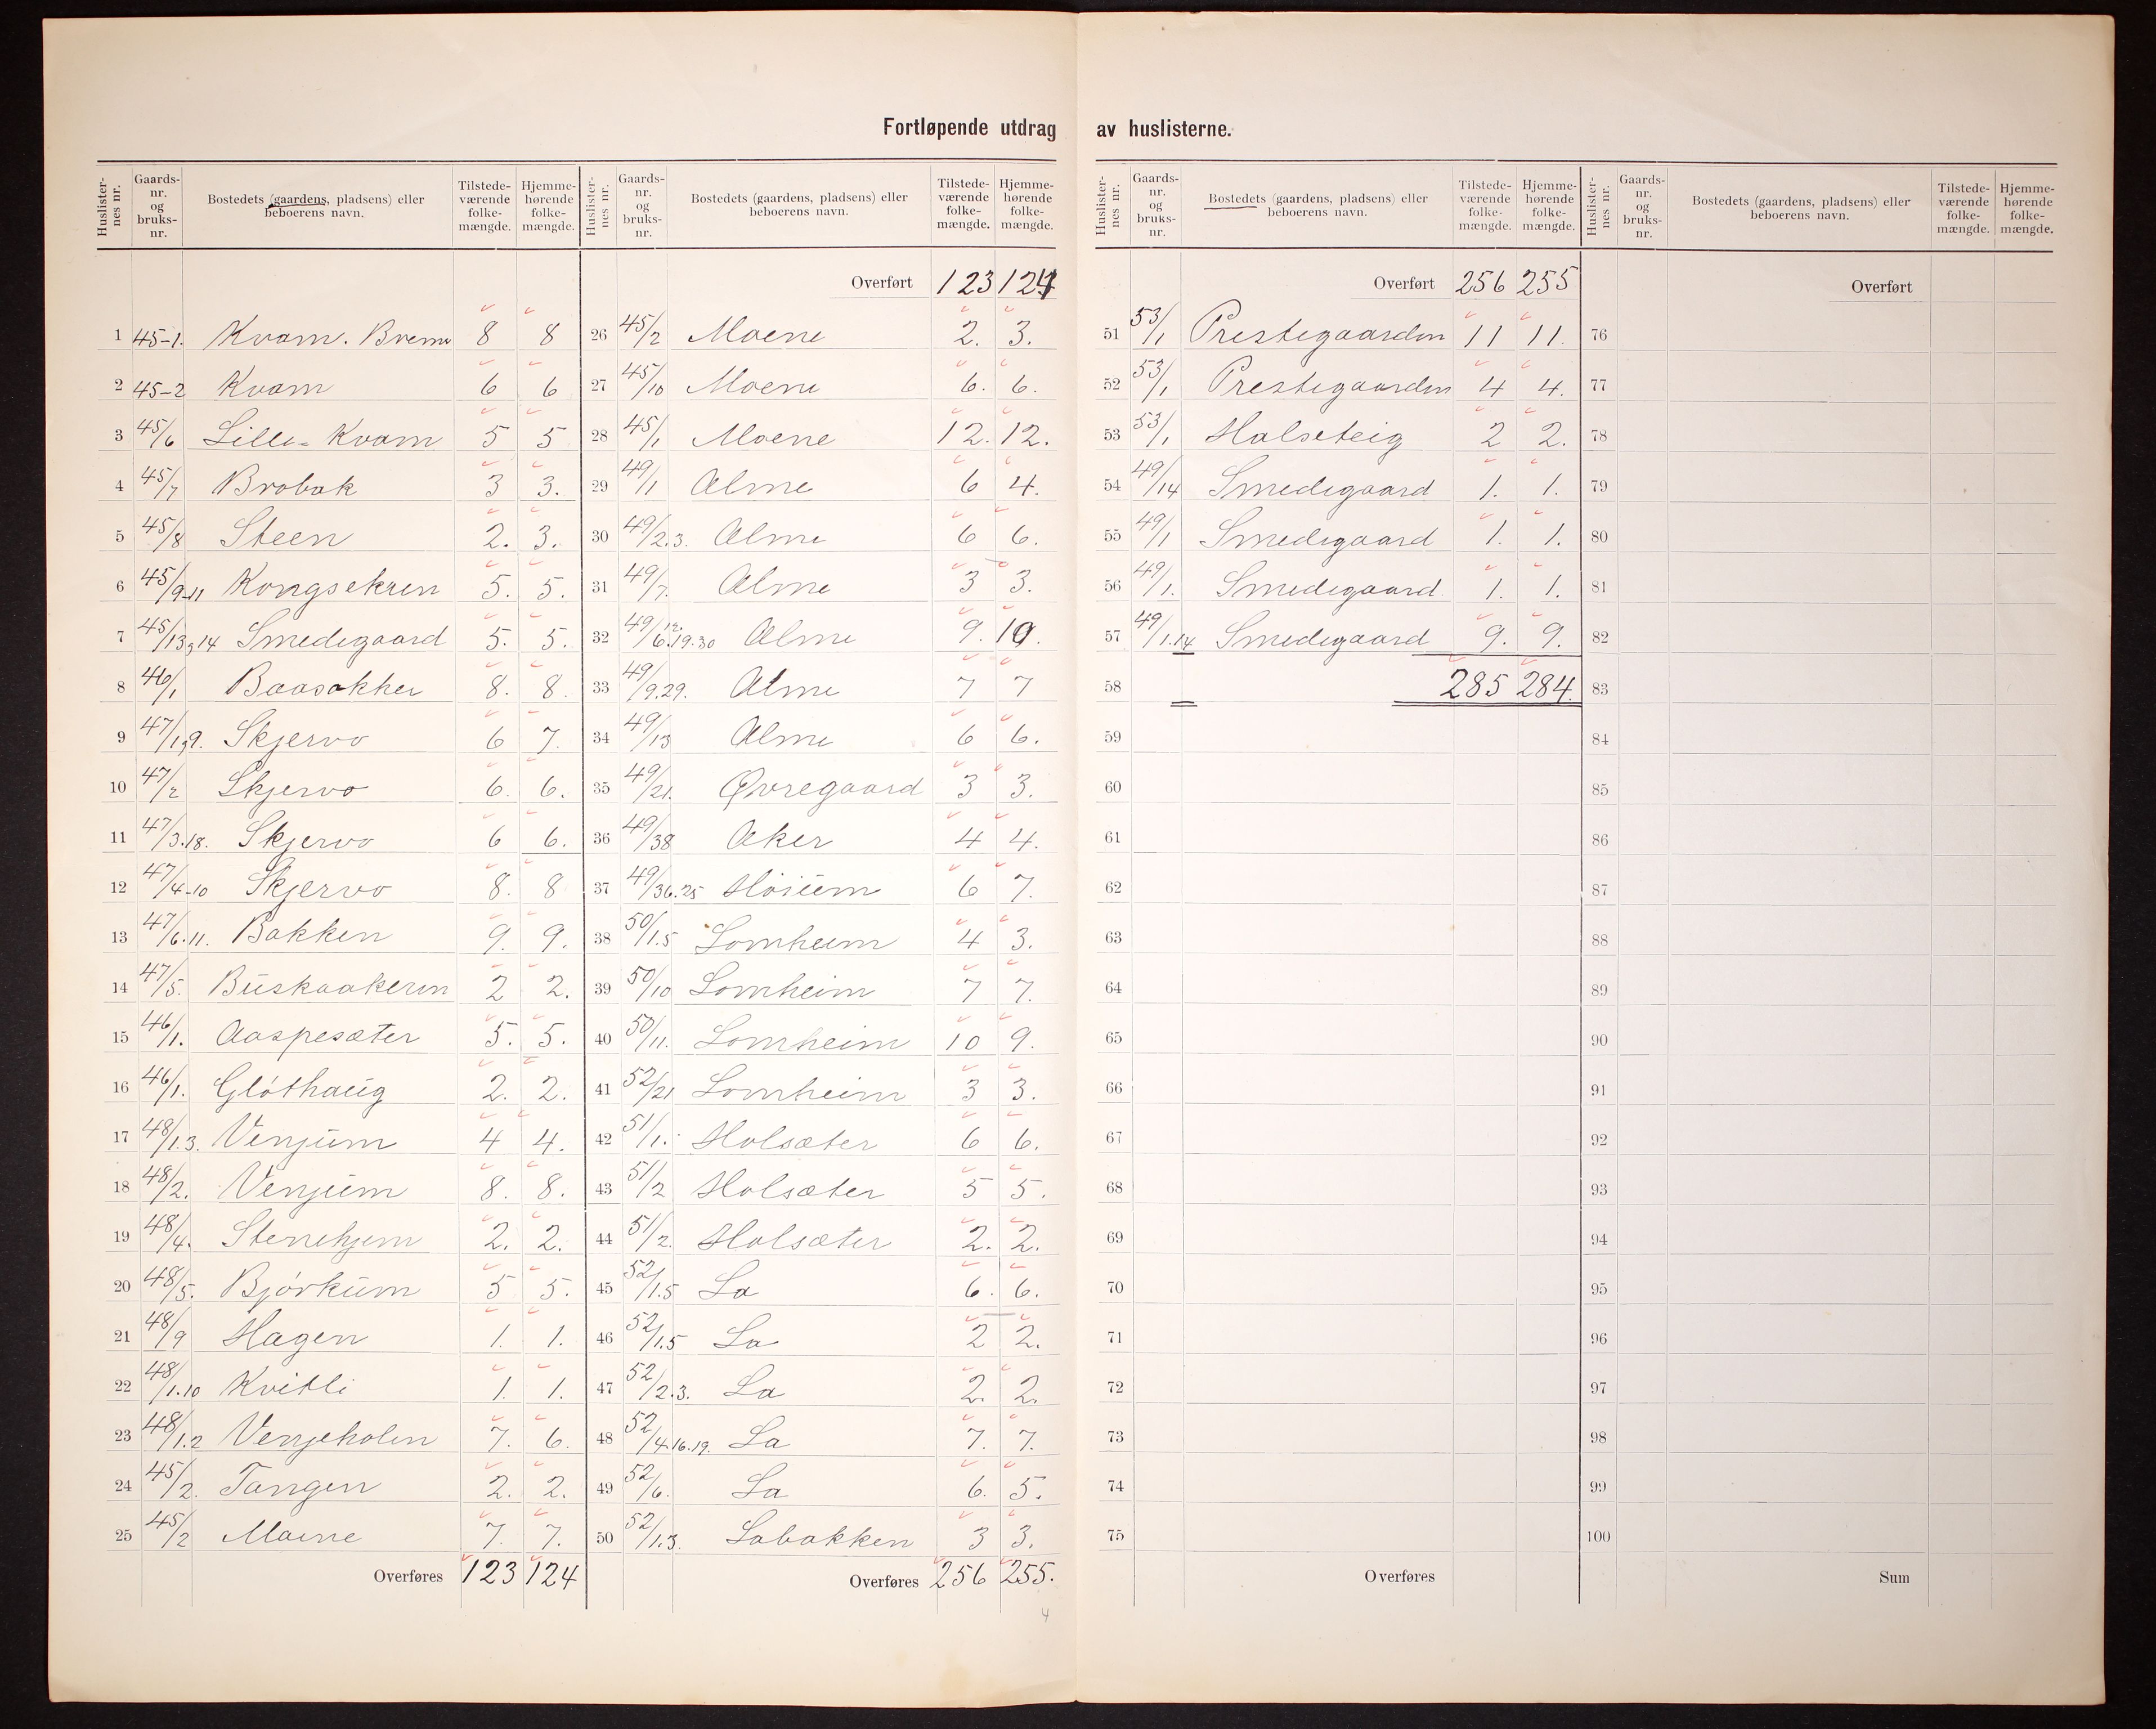 Fortløpende utdrag av huslisterne.
Huslister-nes nr. Gaards-nr. og bruks-nr. Bostedets (gaardens, pladsens) eller beboerens navn. Tilstede-værende folke-mængde. Hjemme-hørende folke-mængde.
1 45-1. Kvam. Bremo 8 8
2 45-2 Kvam 6 6
3 45/6 Lille-Kvam 5 5
4 45/7 Brobak 3 3.
5 45/8 Steen 2. 3.
6 45/9-11 Kongsekren 5. 5.
7 45/13,14 Smedegaard 5. 5.
8 46/1 Baasakker 8. 8.
9 47/1,9. Skjervo 6 7.
10 47/2 Skjervo 6. 6.
11 47/3.18. Skjervo 6 6.
12 47/4-10 Skjervo 8. 8
13 47/6.11. Bakken 9. 9.
14 47/5. Buskaakeren 2 2.
15 46/1. Aaspesæter 5. 5.
16 46/1. Gløthaug 2. 2.
17 48/1.3. Venjum 4 4.
18 48/2. Venjum 8. 8.
19 48/4. Stenehjem 2. 2.
20 48/5. Bjørkum 5 5.
21 48/9 Hagen 1. 1.
22 48/1.10 Kvitli 1. 1.
23 48/1.2 Venjeholen 7. 6.
24 45/2. Tangen 2. 2.
25 45/2 Moene 7. 7.
Overføres 123 124
Huslister-nes nr. Gaards-nr. og bruks-nr. Bostedets (gaardens, pladsens) eller beboerens navn. Tilstede-værende folke-mængde. Hjemme-hørende folke-mængde.
Overført 123 124
26 45/2 Moene 2. 3.
27 45/10 Moene 6. 6.
28 45/1 Moene 12. 12.
29 49/1 Alme 6 4.
30 49/2.3. Alme 6 6.
31 49/7. Alme 3 3.
32 49/6.12.19.30 Alme 9. 10.
33 49/9.29. Alme 7 7
34 49/13 Alme 6 6.
35 49/21. Øvregaard 3 3.
36 49/38 Aker 4 4.
37 49/36.25 Høium 6 7.
38 50/1.5 Lomheim 4 3.
39 50/10 Lomheim 7 7.
40 50/11. Lomheim 10 9.
41 52/21 Lomheim 3 3.
42 51/1. Holsæter 6 6.
43 51/2 Holsæter 5 5.
44 51/2. Holsæter 2. 2.
45 52/1.5 La 6. 6.
46 52/1.5 La 2 2.
47 52/2.3. La 2. 2.
48 52/4.16.19. La 7. 7.
49 52/6. La 6. 5.
50 52/1.3. Labakken 3 3.
Overføres 256 255.
4
Huslister-nes nr. Gaards-nr. og bruks-nr. Bostedets (gaardens, pladsens) eller beboerens navn. Tilstede-værende folke-mængde. Hjemme-hørende folke-mængde.
Overført 256 255
51 53/1 Prestegaarden 11 11.
52 53/1 Prestegaarden 4 4.
53 53/1 Halseteig 2 2.
54 49/14 Smedegaard 1. 1.
55 49/1 Smedegaard 1. 1.
56 49/1. Smedegaard 1. 1.
57 49/1.14 Smedegaard 9. 9.
58 285 284.
59
60
61
62
63
64
65
66
67
68
69
70
71
72
73
74
75
Overføres
Huslister-nes nr. Gaards-nr. og bruks-nr. Bostedets (gaardens, pladsens) eller beboerens navn. Tilstede-værende folke-mængde. Hjemme-hørende folke-mængde.
Overført
76
77
78
79
80
81
82
83
84
85
86
87
88
89
90
91
92
93
94
95
96
97
98
99
100
Sum